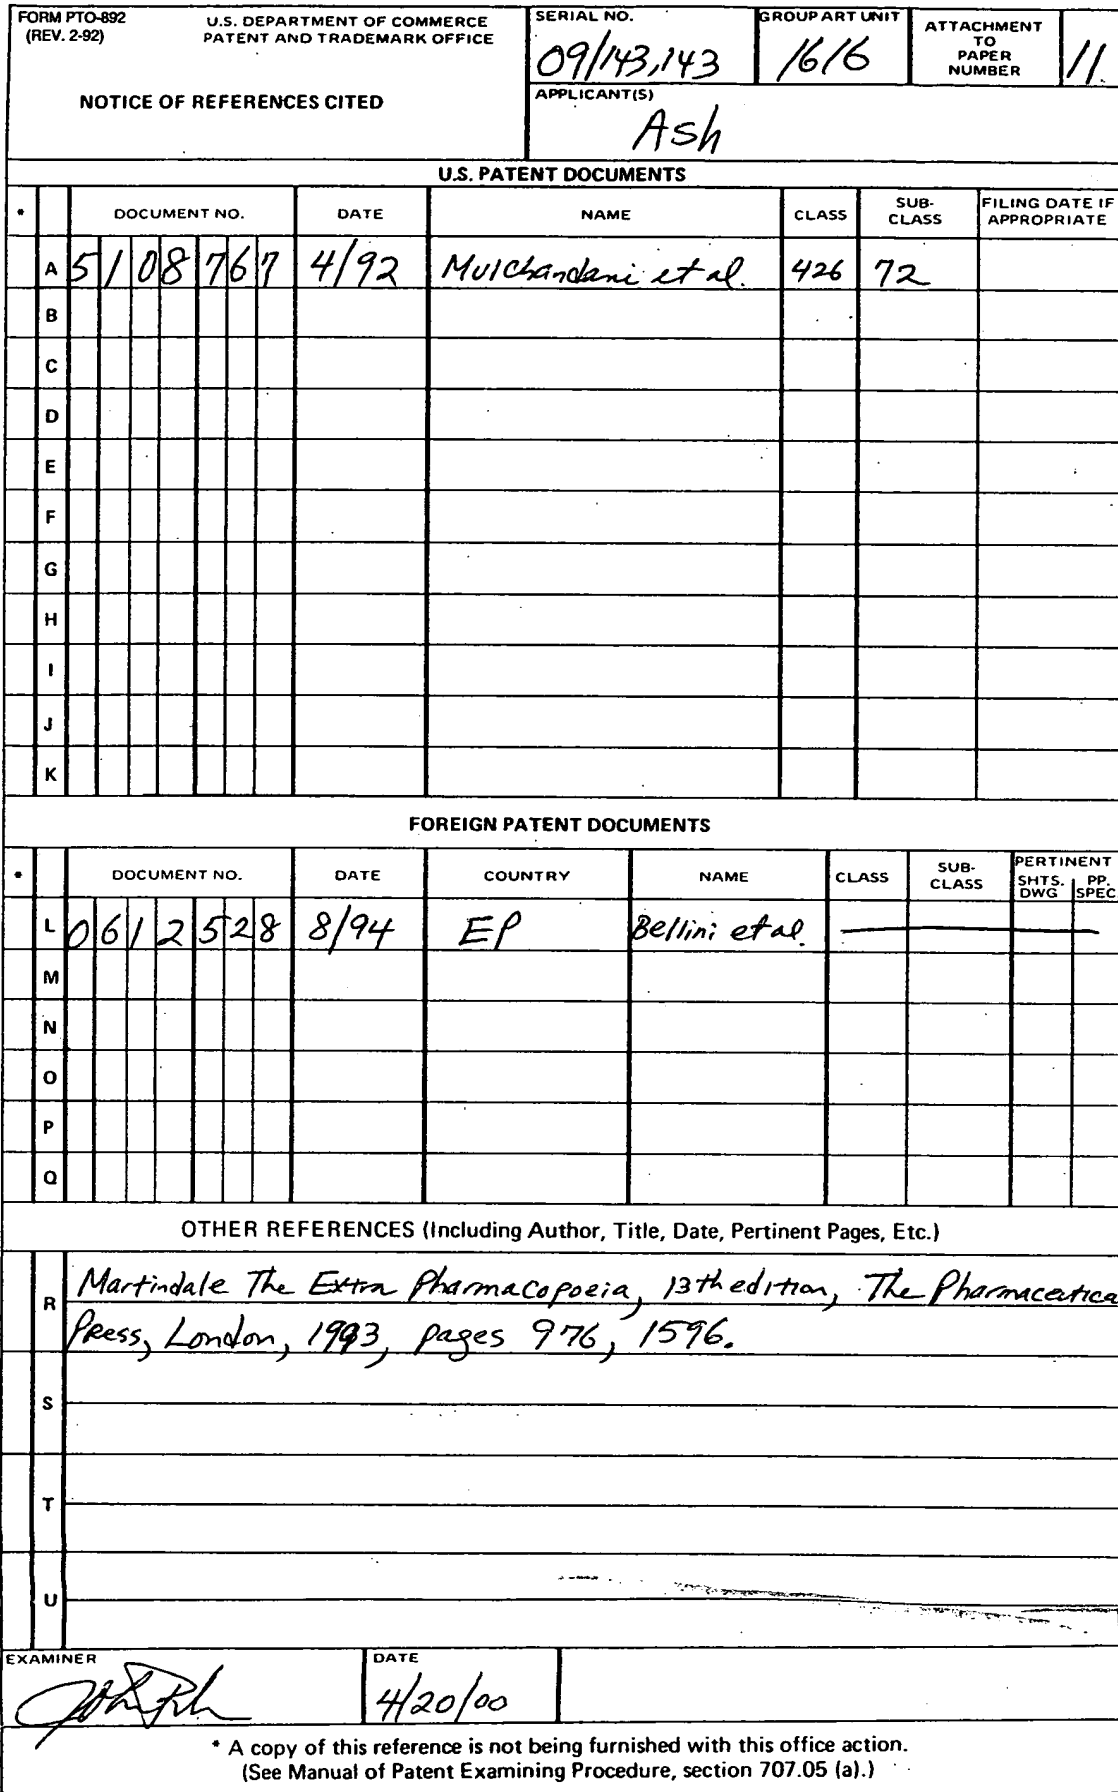 FORM PTO-892
(REV. 2-92)
U.S. DEPARTMENT OF COMMERCE
PATENT AND TRADEMARK OFFICE
NOTICE OF REFERENCES CITED
SERIAL NO.
09/143,143
GROUP ART UNIT
1616
ATTACHMENT
TO
PAPER
NUMBER
11
APPLICANT(S)
Ash
U.S. PATENT DOCUMENTS
* DOCUMENT NO. DATE NAME CLASS SUB-CLASS FILING DATE IF APPROPRIATE
A 5108767 4/92 Mulchandani et al. 426 72
B
C
D
E
F
G
H
I
J
K
FOREIGN PATENT DOCUMENTS
* DOCUMENT NO. DATE COUNTRY NAME CLASS SUB-CLASS PERTINENT SHTS. DWG PP. SPEC
L 0612528 8/94 EP Bellini et al.
M
N
O
P
Q
OTHER REFERENCES (Including Author, Title, Date, Pertinent Pages, Etc.)
R Martindale The Extra Pharmacopoeia, 13th edition, The Pharmaceutica
Press, London, 1993, pages 976, 1596.
S
T
U
EXAMINER
DATE
4/20/00
* A copy of this reference is not being furnished with this office action.
(See Manual of Patent Examining Procedure, section 707.05 (a).)